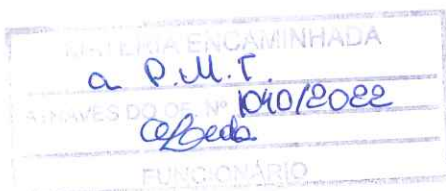 MATÉRIA ENCAMINHADA
a P.M.T.
ATRAVÉS DO OF. Nº 1040/2022
FUNCIONÁRIO